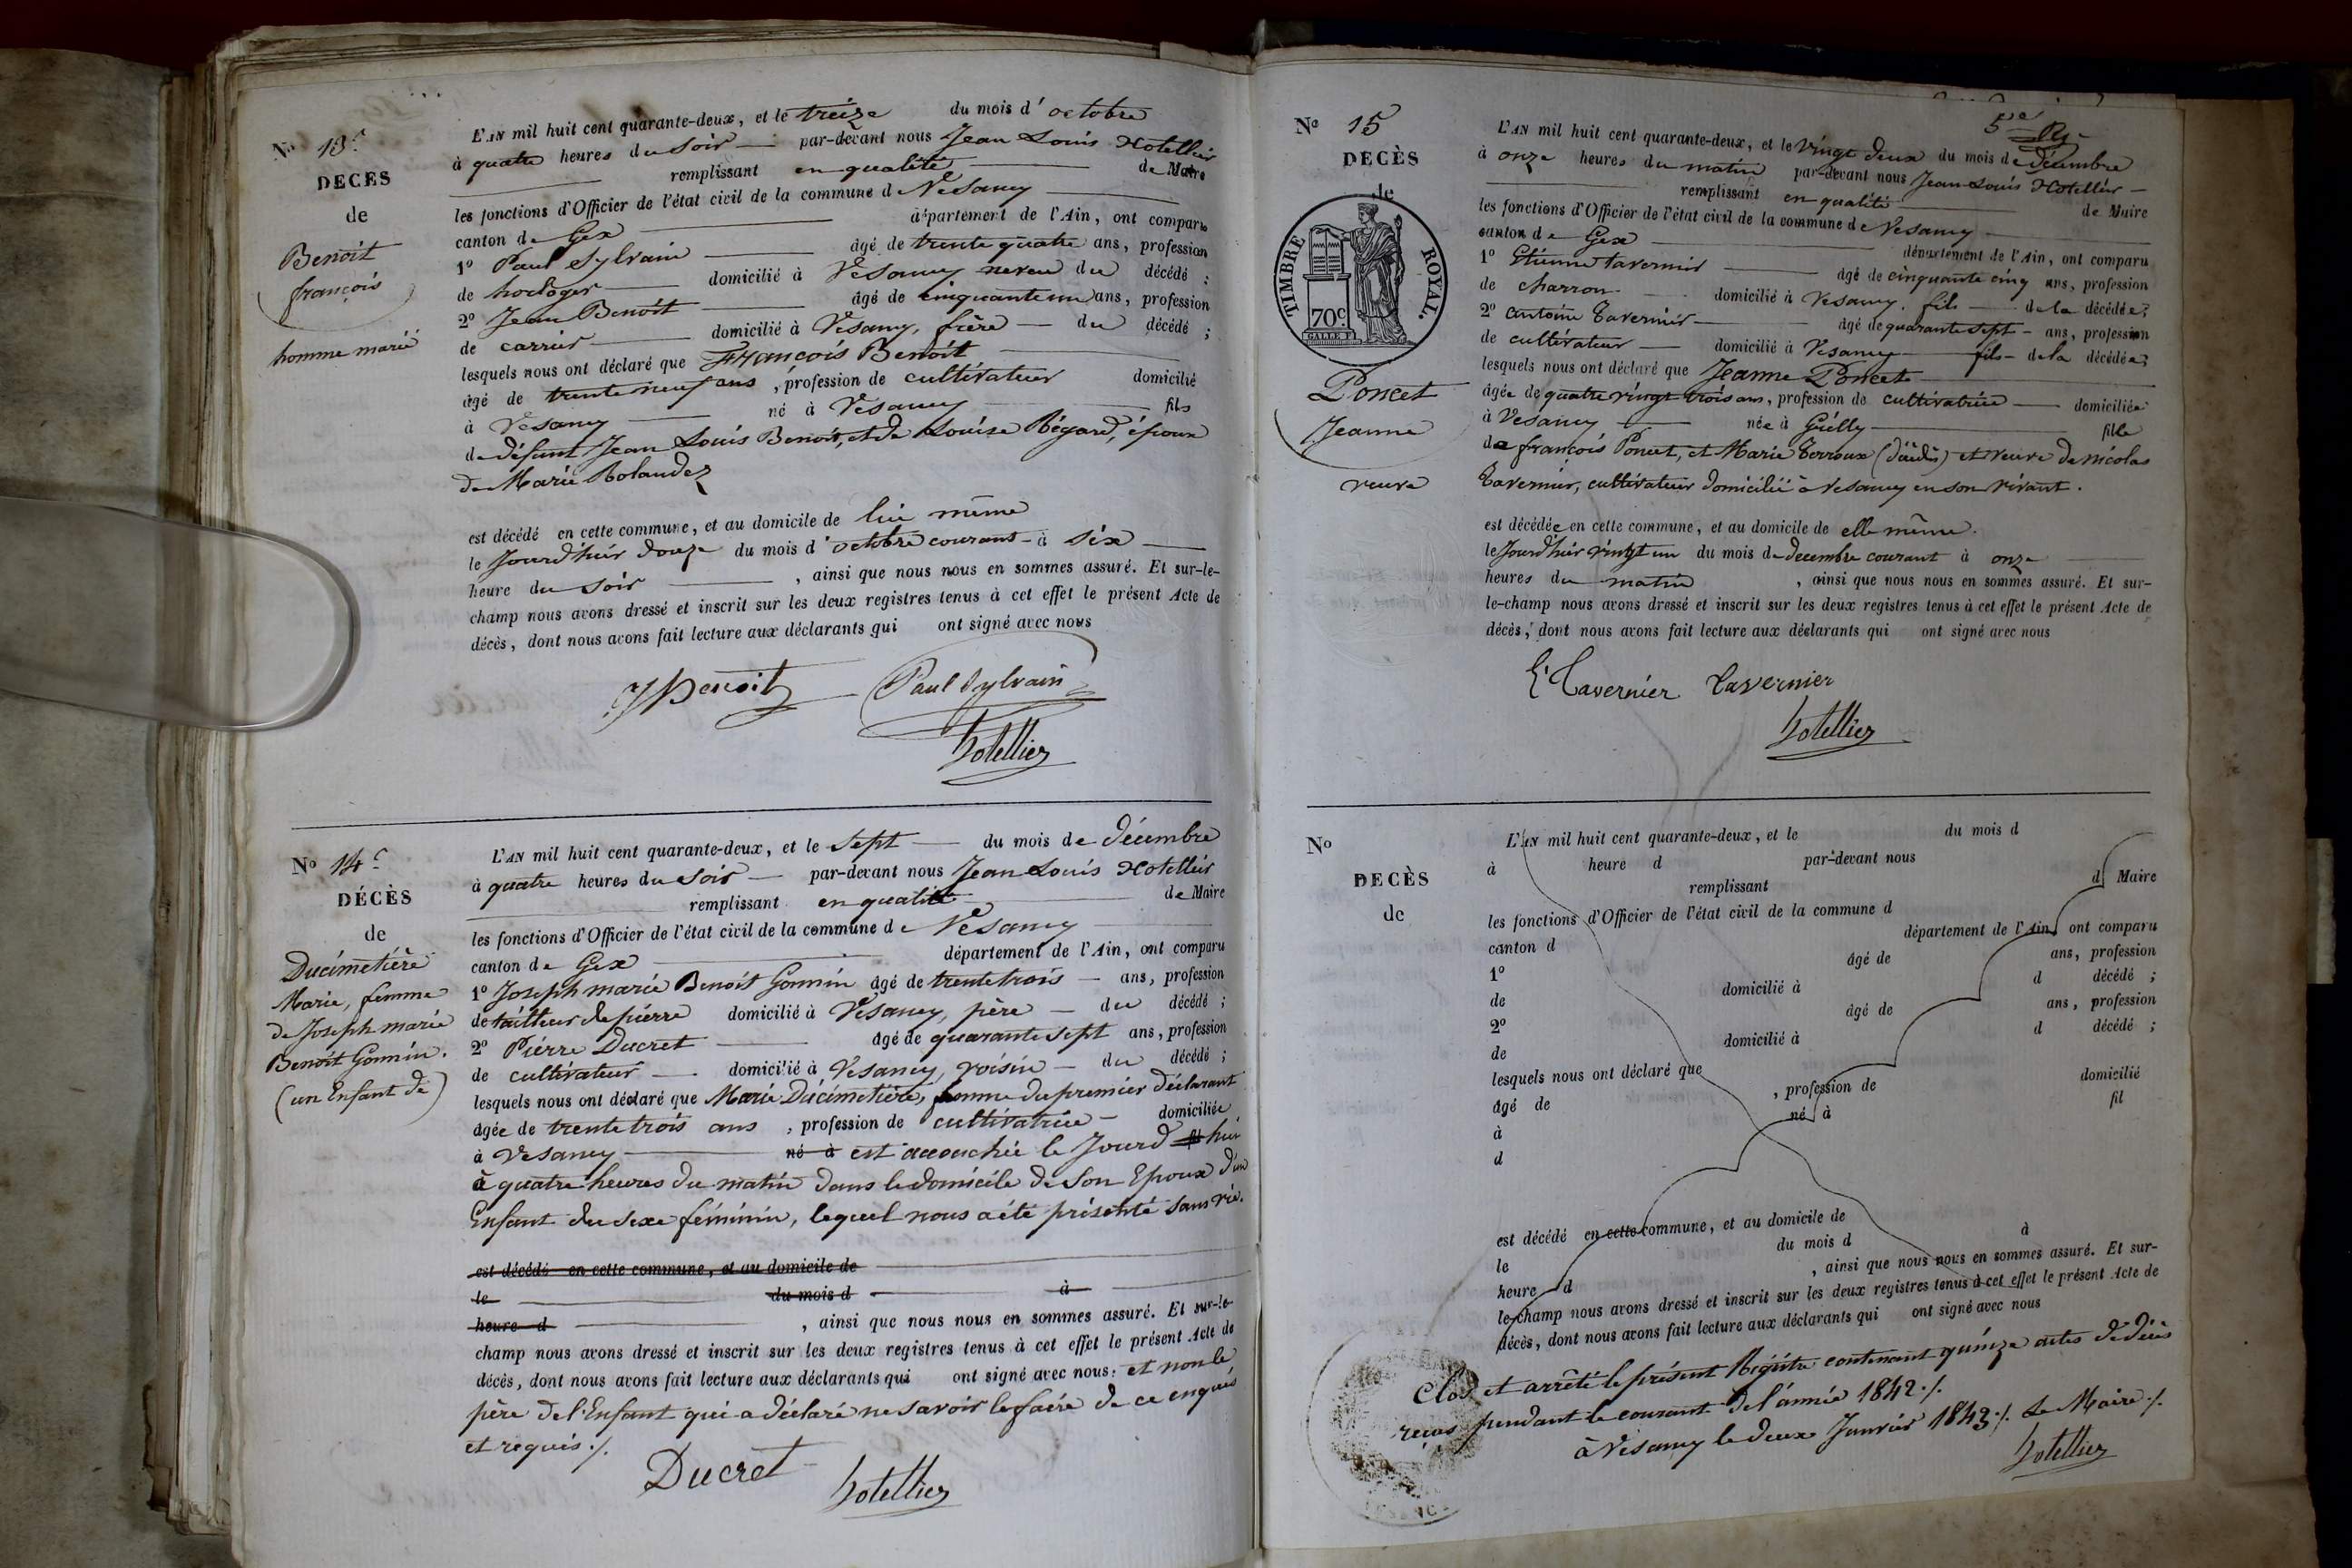 No 13e
DECES
de
Benoit
françois
homme marié
L'AN mil huit cent quarante-deux, et le treize du mois d'octobre
à quatre heures du soir par-devant nous Jean Louis Hotellier
remplissant en qualité de Maire
les fonctions d'Officier de l'état civil de la commune de Vesancy
canton de Gex département de l'Ain, ont comparu
1º Paul Sylvain âgé de trente quatre ans, profession
de horloger domicilié à Vesancy neveu du décédé ;
2º Jean Benoit âgé de cinquante un ans, profession
de carrier domicilié à Vesancy, frère du décédé ;
lesquels nous ont déclaré que François Benoit
âgé de trente neuf ans, profession de cultivateur domicilié
à Vesancy né à Vesancy fils
de défunt Jean Louis Benoit, et de Louise Régard, époux
de Marie Rolandez
est décédé en cette commune, et au domicile de lui même
le Jourd'hui douze du mois d'octobre courant à six
heure du soir, ainsi que nous nous en sommes assuré. Et sur-le-
champ nous avons dressé et inscrit sur les deux registres tenus à cet effet le présent Acte de
décès, dont nous avons fait lecture aux déclarants qui ont signé avec nous
J Benoit Paul Sylvain
hotellier
No 14e
DÉCÈS
de
Ducimetière
Marie, femme
de Joseph marie
Benoit Gonnin.
(un Enfant de)
L'AN mil huit cent quarante-deux, et le sept du mois de décembre
à quatre heures du soir par-devant nous Jean Louis Hotellier
remplissant en qualité de Maire
les fonctions d'Officier de l'état civil de la commune de Vesancy
canton de Gex département de l'Ain, ont comparu
1º Joseph marie Benoit Gonnin âgé de trente trois ans, profession
de tailleur de pierre domicilié à Vesancy, père du décédé ;
2º Pierre Ducret âgé de quarante sept ans, profession
de cultivateur domicilié à Vesancy, voisin du décédé ;
lesquels nous ont déclaré que Marie Ducimetière, femme du premier déclarant
âgée de trente trois ans, profession de cultivatrice domiciliée
à Vesancy né à est accouchée le Jourd'hui
à quatre heures du matin dans le domicile de son Epoux d'un
Enfant du sexe féminin, lequel nous a été présenté sans vie.
est décédé en cette commune, et au domicile de
le du mois d à
heure d , ainsi que nous nous en sommes assuré. Et sur-le-
champ nous avons dressé et inscrit sur les deux registres tenus à cet effet le présent Acte de
décès, dont nous avons fait lecture aux déclarants qui ont signé avec nous : et non le
père de l'Enfant qui a déclaré ne savoir le faire de ce enquis
et requis ./.
Ducret hotellier
5e
No 15
DECÈS
de
TIMBRE ROYAL.
70c.
Poncet
Jeanne
veuve
L'AN mil huit cent quarante-deux, et le vingt deux du mois de décembre
à onze heures du matin par-devant nous Jean Louis Hotellier
remplissant en qualité de Maire
les fonctions d'Officier de l'état civil de la commune de Vesancy
canton de Gex département de l'Ain, ont comparu
1º Etienne tavernier âgé de cinquante cinq ans, profession
de charron domicilié à Vesancy. fils de la décédée ;
2º antoine tavernier âgé de quarante sept ans, profession
de cultivateur domicilié à Vesancy fils de la décédée ;
lesquels nous ont déclaré que Jeanne Poncet
âgée de quatre vingt trois ans, profession de cultivatrice domiciliée
à Vesancy née à Grilly fille
de françois Poncet, et Marie terroux (décédés) et veuve de nicolas
tavernier, cultivateur domicilié à Vesancy en son vivant.
est décédée en cette commune, et au domicile de elle même.
le Jourd'hui vingt un du mois de decembre courant à onze
heures du matin, ainsi que nous nous en sommes assuré. Et sur-
le-champ nous avons dressé et inscrit sur les deux registres tenus à cet effet le présent Acte de
décès, dont nous avons fait lecture aux déclarants qui ont signé avec nous
E. tavernier tavernier
hotellier
No
DECÈS
de
L'AN mil huit cent quarante-deux, et le du mois d
à heure d par-devant nous
remplissant d Maire
les fonctions d'Officier de l'état civil de la commune d
canton d département de l'Ain, ont comparu
1º âgé de ans, profession
de domicilié à d décédé ;
2º âgé de ans, profession
de domicilié à d décédé ;
lesquels nous ont déclaré que
âgé de , profession de domicilié
à né à fil
d
est décédé en cette commune, et au domicile de
le du mois d à
heure d , ainsi que nous nous en sommes assuré. Et sur-
le-champ nous avons dressé et inscrit sur les deux registres tenus à cet effet le présent Acte de
décès, dont nous avons fait lecture aux déclarants qui ont signé avec nous
Clos et arrêté le présent Régistre contenant quinze actes de décès
reçus pendant le courant de l'année 1842 ./.
à Vesancy le deux Janvier 1843 ./. Le Maire ./.
hotellier